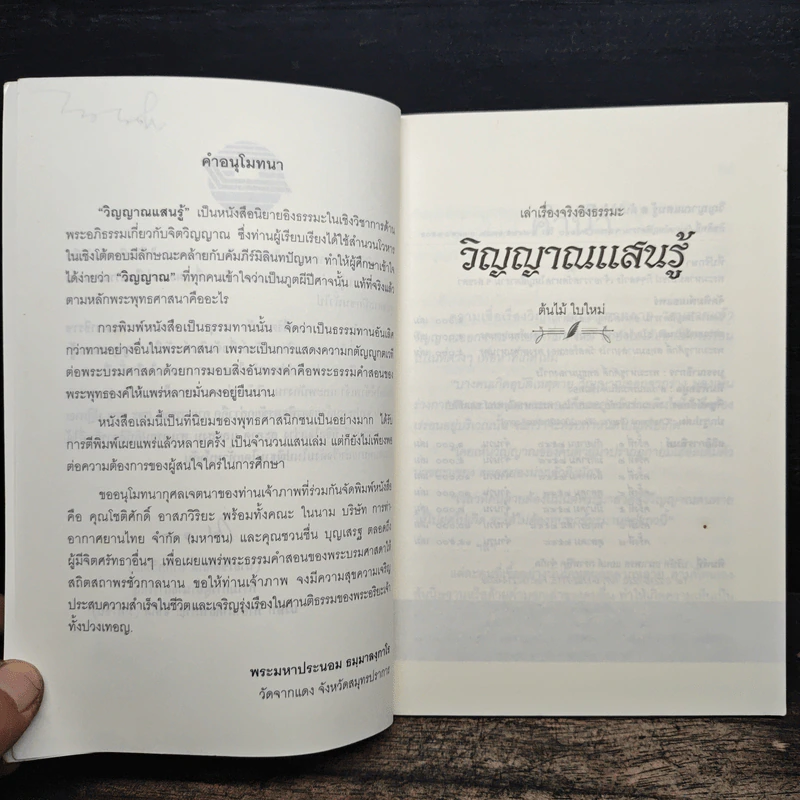 คำอนุโมทนา
"วิญญาณแสนรู้" เป็นหนังสือนิยายอิงธรรมะในเชิงวิชาการด้าน
พระอภิธรรมเกี่ยวกับจิตวิญญาณ ซึ่งท่านผู้เรียบเรียงได้ใช้สำนวนโวหาร
ในเชิงโต้ตอบมีลักษณะคล้ายกับคัมภีร์มิลินทปัญหา ทำให้ผู้ศึกษาเข้าใจ
ได้ง่ายว่า "วิญญาณ" ที่ทุกคนเข้าใจว่าเป็นภูตผีปีศาจนั้น แท้ที่จริงแล้ว
ตามหลักพระพุทธศาสนาคืออะไร
การพิมพ์หนังสือเป็นธรรมทานนั้น จัดว่าเป็นธรรมทานอันเลิศ
กว่าทานอย่างอื่นในพระศาสนา เพราะเป็นการแสดงความกตัญญูกตเวที
ต่อพระบรมศาสดาด้วยการมอบสิ่งอันทรงค่าคือพระธรรมคำสอนของ
พระพุทธองค์ให้แพร่หลายมั่นคงอยู่ยืนนาน
หนังสือเล่มนี้เป็นที่นิยมของพุทธศาสนิกชนเป็นอย่างมาก ได้รับ
การตีพิมพ์เผยแพร่แล้วหลายครั้ง เป็นจำนวนแสนเล่ม แต่ก็ยังไม่เพียงพอ
ต่อความต้องการของผู้สนใจใคร่ในการศึกษา
ขออนุโมทนากุศลเจตนาของท่านเจ้าภาพที่ร่วมกันจัดพิมพ์หนังสือ
คือ คุณโชติศักดิ์ อาสภวิริยะ พร้อมทั้งคณะ ในนาม บริษัท การท่า-
อากาศยานไทย จำกัด (มหาชน) และคุณชวนชื่น บุญเสรฐ ตลอดถึง
ผู้มีจิตศรัทธาอื่นๆ เพื่อเผยแผ่พระธรรมคำสอนของพระบรมศาสดาให้
สถิตสถาพรชั่วกาลนาน ขอให้ท่านเจ้าภาพ จงมีความสุขความเจริญ
ประสบความสำเร็จในชีวิตและเจริญรุ่งเรืองในศานติธรรมของพระอริยะเจ้า
ทั้งปวงเทอญ.
พระมหาประนอม ธมฺมาลงฺกาโร
วัดจากแดง จังหวัดสมุทรปราการ
เล่าเรื่องจริงอิงธรรมะ
วิญญาณแสนรู้
ต้นไม้ ใบใหม่